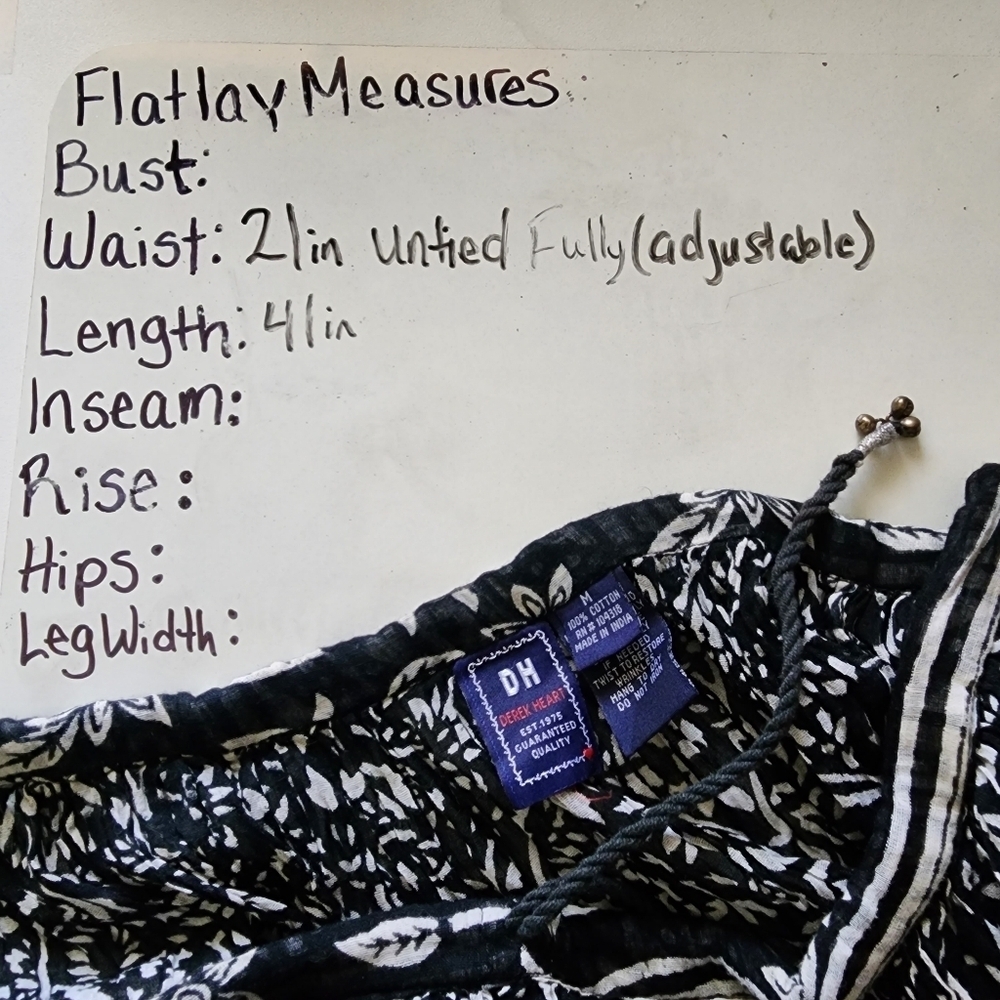 Flatlay Measures
Bust:
Waist: 21in Untied Fully (adjustable)
Length: 41in
Inseam:
Rise:
Hips:
Leg Width:
M
100% COTTON
RN# 104318
MADE IN INDIA
IF NEEDED
TWIST TO RESTORE
WRINKLES
HANG TO DRY
DO NOT IRON
DH
DEREK HEART
EST. 1975
GUARANTEED
QUALITY